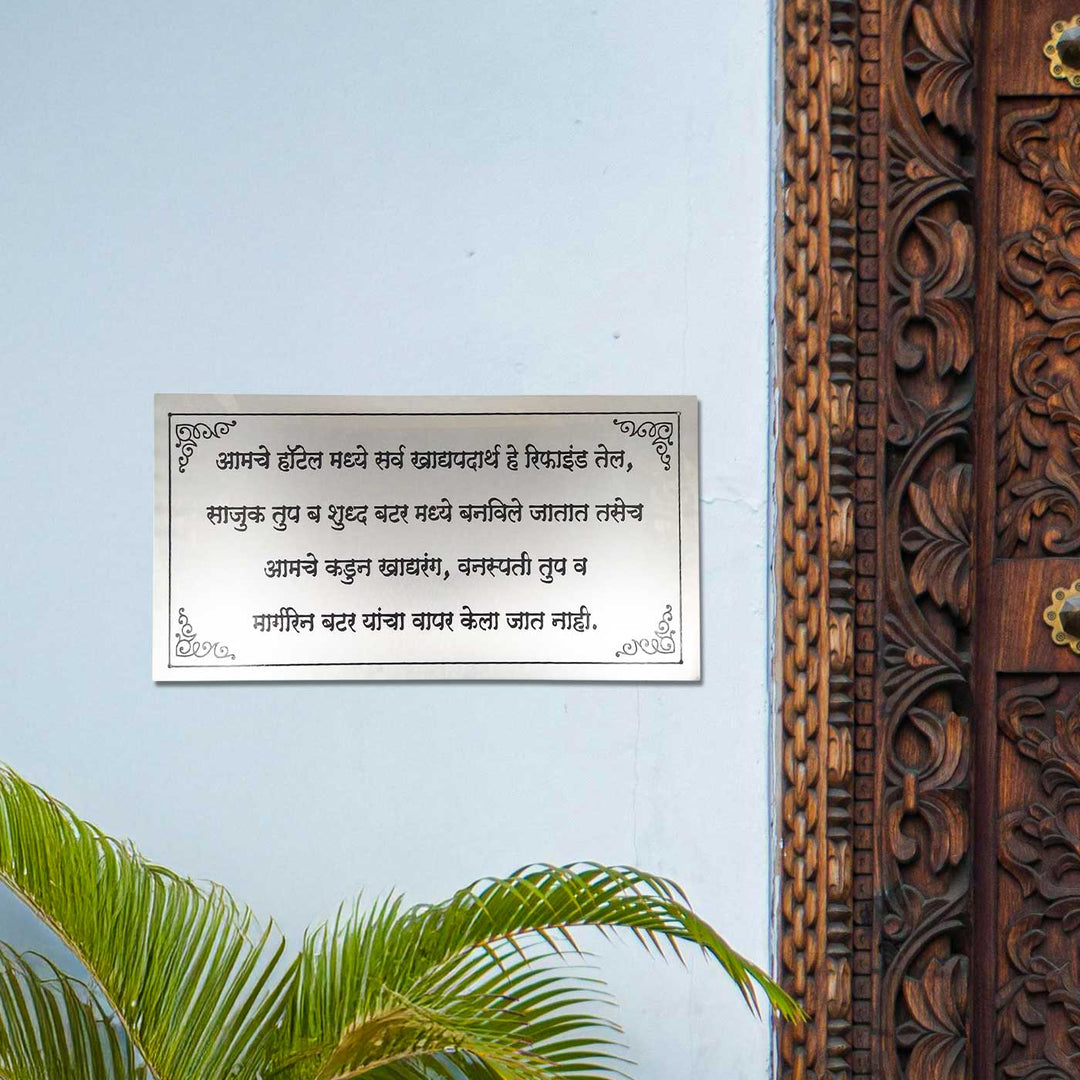 आमचे हॉटेल मध्ये सर्व खाद्यपदार्थ हे रिफाइंड तेल,
साजुक तुप व शुध्द बटर मध्ये बनविले जातात तसेच
आमचे कडुन खाद्यरंग, वनस्पती तुप व
मार्गरिन बटर यांचा वापर केला जात नाही.